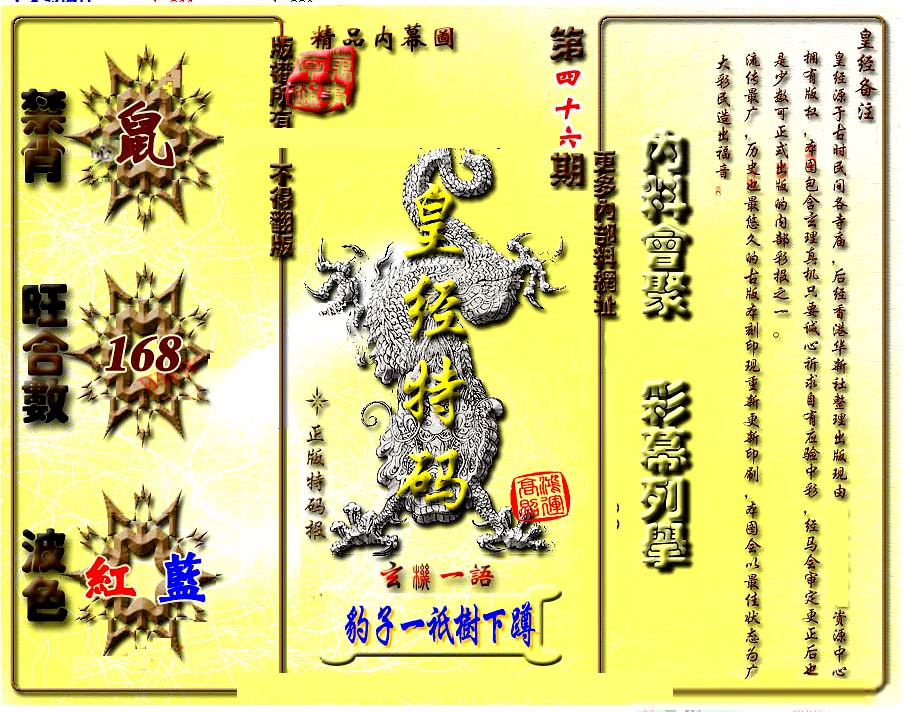 精品内幕圖
版權所有
不得翻版
第四十六期
更多内部料網址
禁肖
鼠
旺合數
168
波色
紅 藍
皇经特码
正版特码报
鴻運
高照
玄機一語
豹子一祇樹下蹲
内料會聚
彩幕列舉
皇经备注
皇经源于古时民间各寺庙，后经香港华新社整理出版现由 资源中心
拥有版权，本图包含玄理真机只要诚心祈求自有应验中彩，经马会审定更正后也
是少数可正式出版的内部彩报之一。
流传最广，历史也最悠久的古版本刻印现重新更新印刷，本图会以最佳状态为广
大彩民造出福音